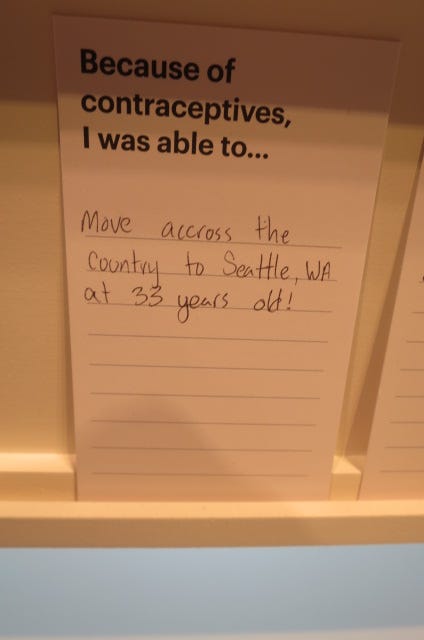 Because of
contraceptives,
I was able to...
Move accross the
Country to Seattle, WA
at 33 years old!